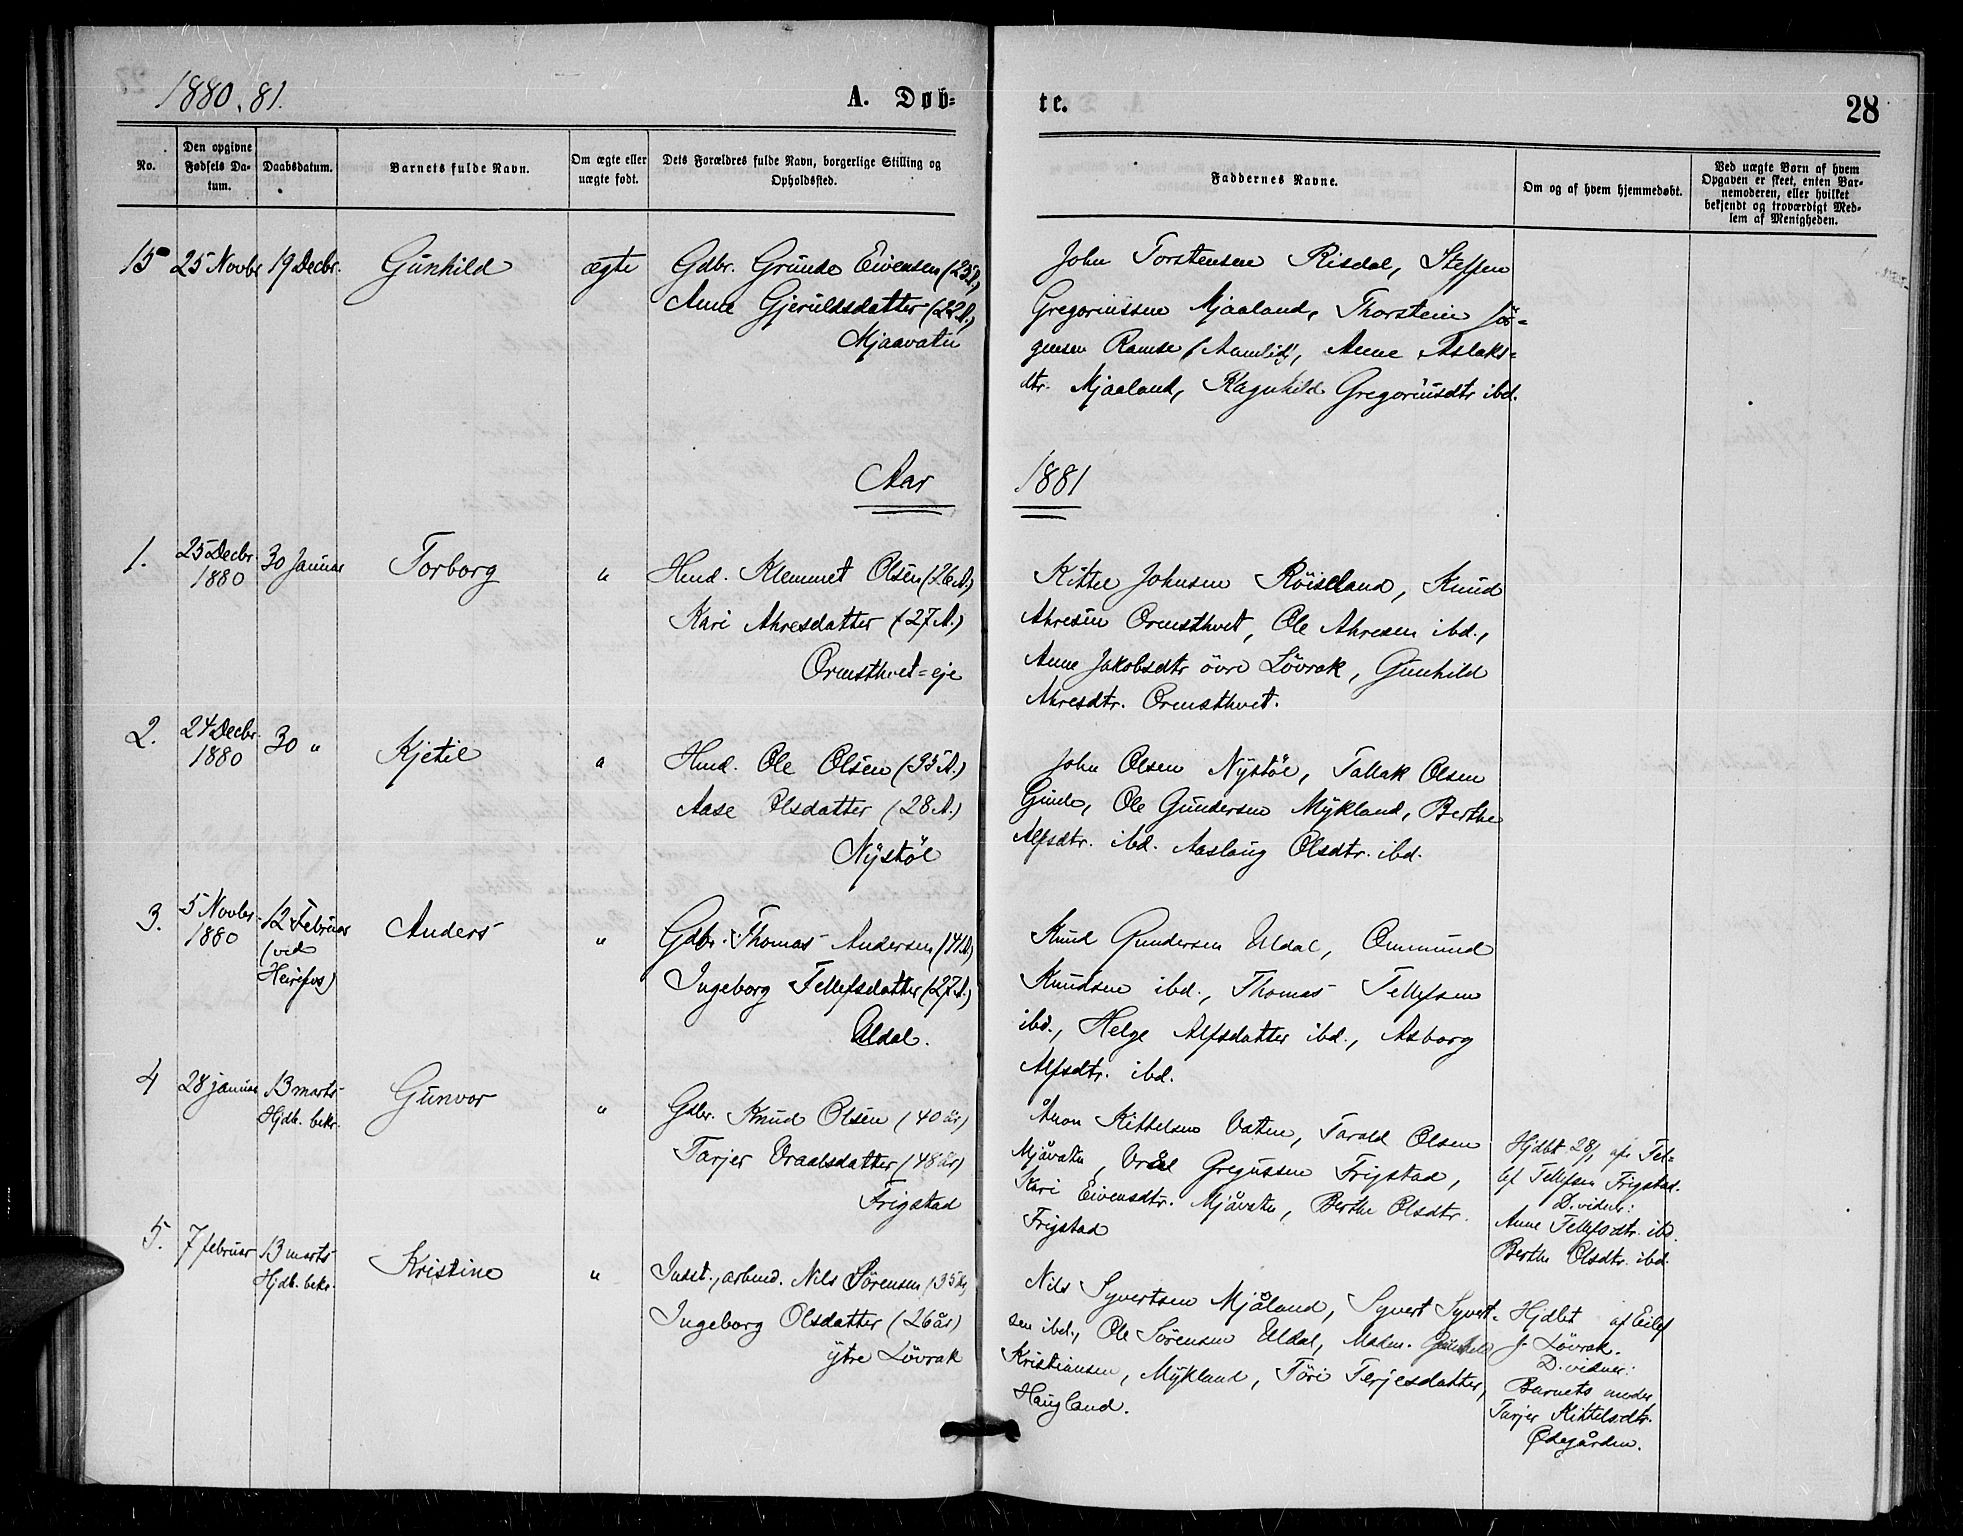 1880.81.
A. Døb=
te.
28
No.
Den opgivne
Fødsels Da-
tum.
Daabsdatum.
Barnets fulde Navn.
Om ægte eller
uægte født.
Dets Forældres fulde Navn, borgerlige Stilling og
Opholdssted.
Faddernes Navne.
Om og af hvem hjemmedøbt.
Ved uægte Børn af hvem
Opgaven er skeet, enten Bar-
nemoderen, eller hvilket
bekjendt og troværdigt Med-
lem af Menigheden.
15
25 Novbr
19 Decbr.
Gunhild
ægte
Gdbr. Grunde Eivensen (25 A.)
Anne Gjeruldsdatter (22 A.)
Mjaavatn
John Torstensen Risdal, Steffen
Gregoriussen Mjaaland, Thorstein Jör=
gensen Ramse (Aamlid), Anne Aslaks=
dtr. Mjaaland, Ragnhild Gregoriusdtr ibd.
Aar
1881
1.
25 Decbr.
1880
30 Januar
Torborg
"
Hmd. Klemmet Olsen (26 A.)
Kari Ahresdatter (27 A.)
Ormsthvet=eje
Kittel Johnsen Röiseland, Knud
Ahresen Ormsthvet, Ole Ahresen ibd.,
Anne Jakobsdtr övre Lövrak, Gunhild
Ahresdtr. Ormsthvet.
2.
24 Decbr.
1880
30 "
Kjetil
"
Hmd. Ole Olsen (35 A.)
Aase Olsdatter (28 A.)
Nystöl
John Olsen Nystöl, Tallak Olsen
Ole Gundersen Mykland, Berthe
Alfsdtr. ibd. Aaslaug Olsdtr. ibd.
3.
5 Novbr.
1880
12 Februar
(ved
Heirefos)
Anders
"
Gdbr. Thomas Andersen (41 A.)
Ingeborg Tellefsdatter (27 A.)
Uldal.
Knud Gundersen Uldal, Ommund
Knudsen ibd., Thomas Tellefsen
ibd., Helge Alfsdatter ibd., Asborg
Alfsdtr. ibd.
4
28 januar
13 marts
Hjdb. bekr.
Gunvor
"
Gdbr. Knud Olsen (40 år)
Tarjer Vraalsdatter (48 år)
Frigstad
Ånon Kittelsen Vatne, Tarald Olsen
Mjåvatn, Vrål Gregussen Frigstad,
Kari Eivensdtr. Mjåvatn, Berthe Olsdtr.
Frigstad
Hjdbt 28/1 af Tel=
lef Tellefsen Frigstad.
D. vidner:
Anne Tellefsdtr. ib.
Berthe Olsdtr. ibd.
5.
7 februar
13 marts
Hjdb. bekr.
Kristine
"
Indst., arbmd. Nils Sörensen (35 år)
Ingeborg Olsdatter (26 år)
ytre Lövrak
Nils Syvertsen Mjåland, Syvert Syvert=
sen ibd., Ole Sörensen Uldal, Madm. Gunhild
Kristiansen, Mykland, Töri Terjesdatter,
Haugland.
Hjdbt af Eilef
J. Lövrak.
D. vidner:
Barnets moder
Tarjer Kittelsdtr.
Ødegården.